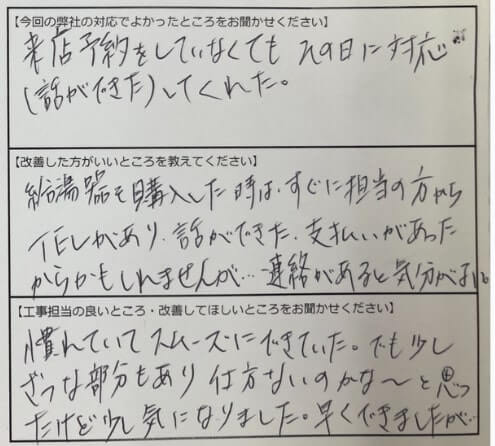 【今回の弊社の対応でよかったところをお聞かせください】
来店予約をしていなくてもその日に対応
(話ができた)してくれた。
【改善した方がいいところを教えてください】
給湯器を購入した時は、すぐに担当の方から
TELがあり、話ができた、支払いがあった
からかもしれませんが… 連絡があると気分がよい。
【工事担当の良いところ・改善してほしいところをお聞かせください】
慣れていてスムーズにできていた。でも少し
ざつな部分もあり仕方ないのかな〜と思っ
たけど少し気になりました。早くできましたが…